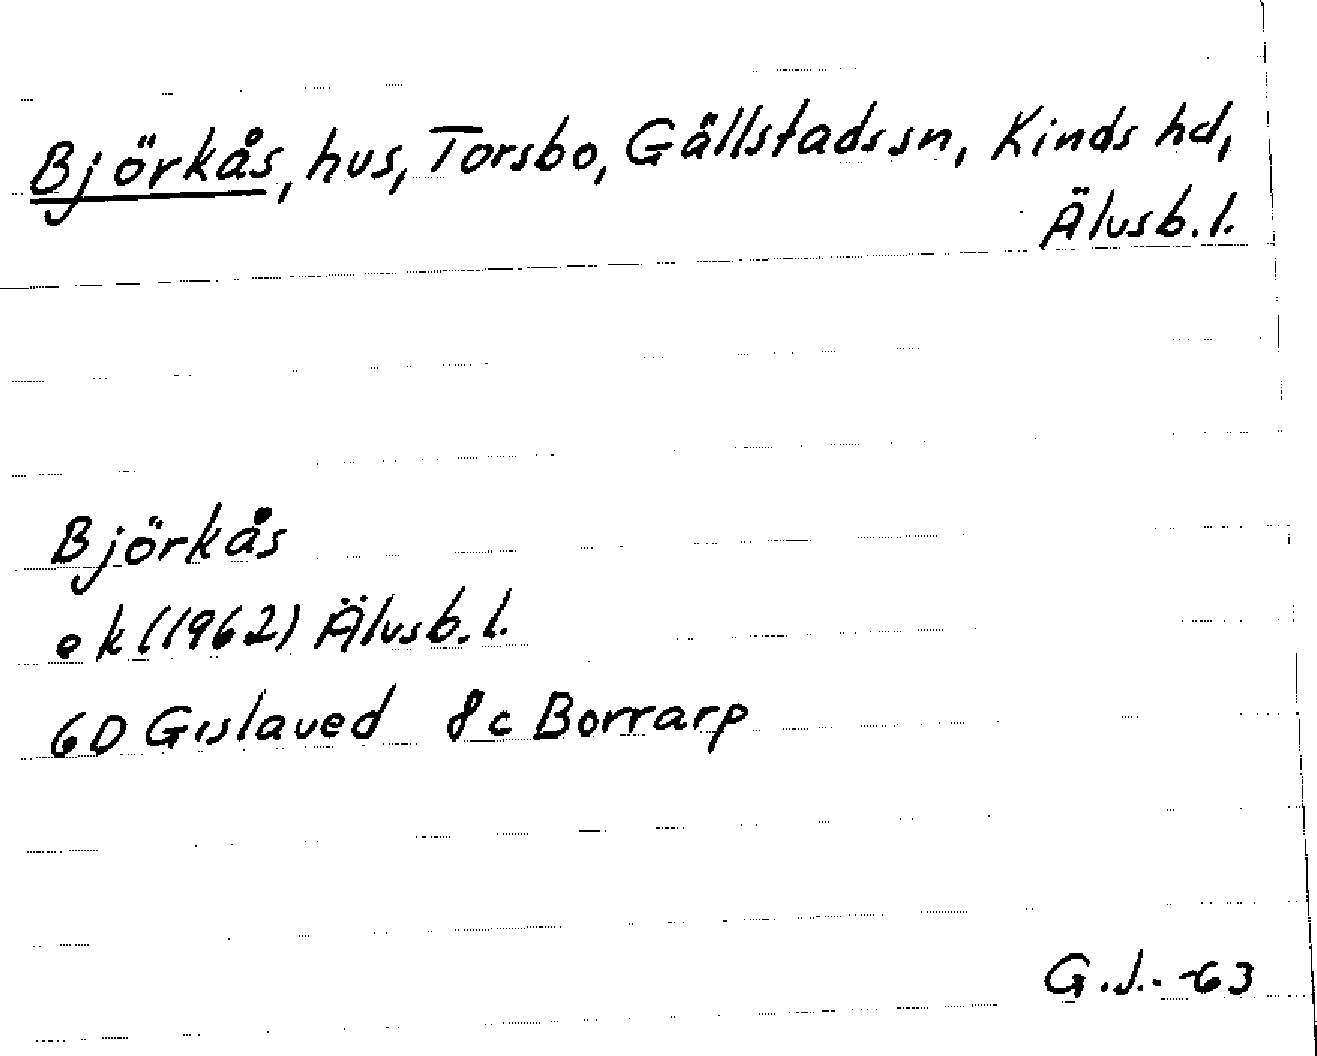 Björkås, hus, Torsbo, Gällstads sn, Kinds hd,
Älvsb. l.
Björkås
ek (1962) Älvsb. l.
6D Gislaved 8c Borrarp
G.J. -63